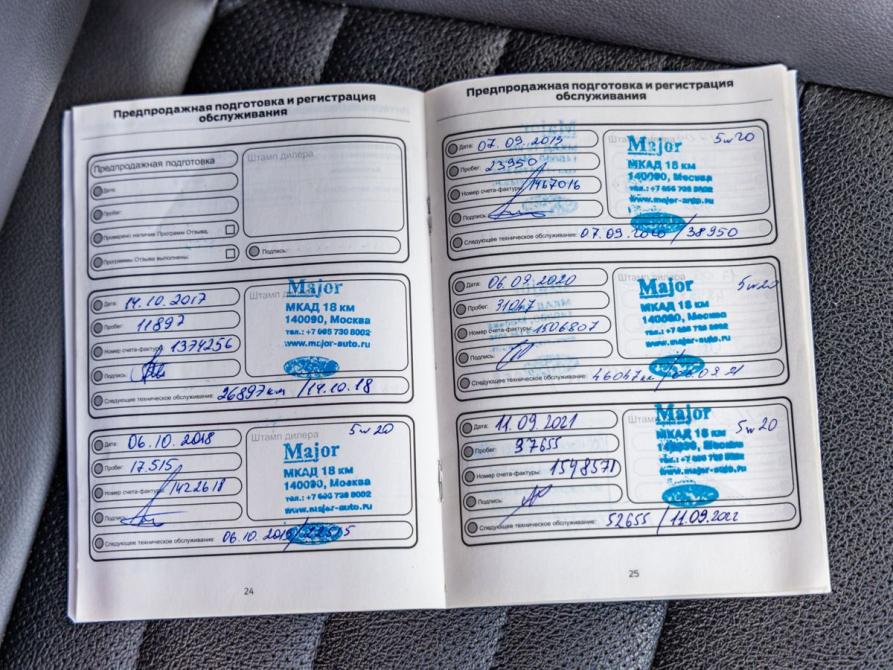 Предпродажная подготовка и регистрация
обслуживания
Предпродажная подготовка
Штамп дилера
Дата:
Пробег:
Проверено наличие Программ Отзыва.
Программы Отзыва выполнены.
Подпись:
Дата: 14.10.2017
Пробег: 11897
Номер счета-фактуры: 1374256
Подпись:
Следующее техническое обслуживание: 26897 км /14.10.18
Штамп
Major
МКАД 18 км
140090, Москва
www.major-auto.ru
Дата: 06.10.2018
Пробег: 17515
Номер счета-фактуры: 1422618
Подпись:
Следующее техническое обслуживание: 06.10.2019
Штамп дилера
5w20
Major
МКАД 18 км
140090, Москва
www.major-auto.ru
24
Предпродажная подготовка и регистрация
обслуживания
Дата: 07.09.2019
Пробег: 23950
Номер счета-фактуры: 1467016
Подпись:
Следующее техническое обслуживание: 07.09.2020 /38950
5w20
Major
МКАД 18 км
140090, Москва
www.major-auto.ru
Дата: 06.09.2020
Пробег: 31047
Номер счета-фактуры: 1506807
Подпись:
Следующее техническое обслуживание: 46047 км
5w20
Major
МКАД 18 км
140090, Москва
www.major-auto.ru
Дата: 11.09.2021
Пробег: 37655
Номер счета-фактуры: 1548571
Подпись:
Следующее техническое обслуживание: 52655 /11.09.2022
5w20
Major
МКАД 18 км
140090, Москва
www.major-auto.ru
25